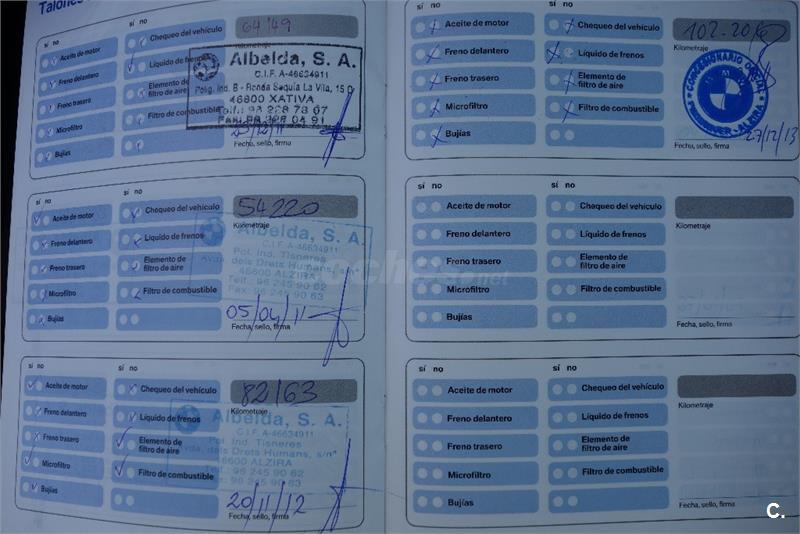 Talones
sí no
sí no
64149
Aceite de motor
Chequeo del vehículo
Kilometraje
Freno delantero
Líquido de frenos
Freno trasero
Elemento de
filtro de aire
Microfiltro
Filtro de combustible
Bujías
Albelda, S. A.
C.I.F. A-46634911
Polig. Ind. B - Ronda Sequia La Vila, 15
46800 XATIVA
Fecha, sello, firma
sí no
sí no
54220
Aceite de motor
Chequeo del vehículo
Kilometraje
Freno delantero
Líquido de frenos
Freno trasero
Elemento de
filtro de aire
Microfiltro
Filtro de combustible
Bujías
Albelda, S. A.
C.I.F. A-46634911
Pol. Ind. Tisneres
Avda. dels Drets Humans, s/n
46600 ALZIRA
Telf.: 96 245 90 62
Fax: 96 245 90 63
05/04/11
Fecha, sello, firma
sí no
sí no
82163
Aceite de motor
Chequeo del vehículo
Kilometraje
Freno delantero
Líquido de frenos
Freno trasero
Elemento de
filtro de aire
Microfiltro
Filtro de combustible
Bujías
Albelda, S. A.
C.I.F. A-46634911
Pol. Ind. Tisneres
dels Drets Humans, s/n
46600 ALZIRA
96 245 90 62
96 245 90 63
20/11/12
Fecha, sello, firma
sí no
sí no
Aceite de motor
Chequeo del vehículo
Kilometraje
Freno delantero
Líquido de frenos
Freno trasero
Elemento de
filtro de aire
Microfiltro
Filtro de combustible
Bujías
CONCESIONARIO OFICIAL
BMW
ALZIRA
27/12/13
Fecha, sello, firma
sí no
sí no
Aceite de motor
Chequeo del vehículo
Kilometraje
Freno delantero
Líquido de frenos
Freno trasero
Elemento de
filtro de aire
Microfiltro
Filtro de combustible
Bujías
Fecha, sello, firma
sí no
sí no
Aceite de motor
Chequeo del vehículo
Kilometraje
Freno delantero
Líquido de frenos
Freno trasero
Elemento de
filtro de aire
Microfiltro
Filtro de combustible
Bujías
Fecha, sello, firma
coches.net
C.